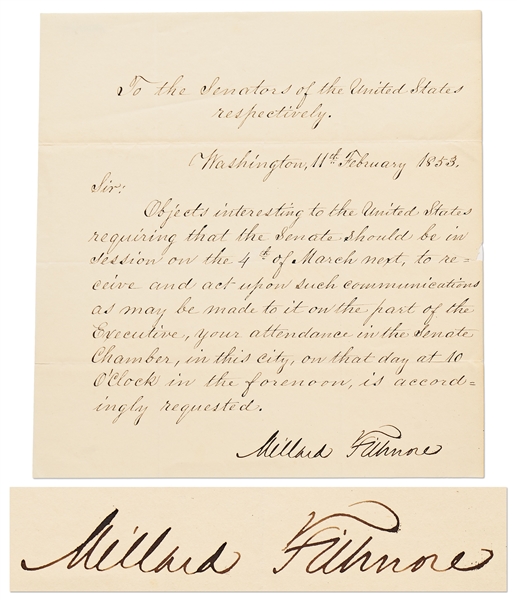 To the Senators of the United States
respectively.
Washington, 11th February 1853.
Sir:
Objects interesting to the United States
requiring that the Senate should be in
session on the 4th of March next, to re=
ceive and act upon such communications
as may be made to it on the part of the
Executive, your attendance in the Senate
Chamber, in this city, on that day at 10
O'Clock in the forenoon, is accord=
ingly requested.
Millard Fillmore
Millard Fillmore